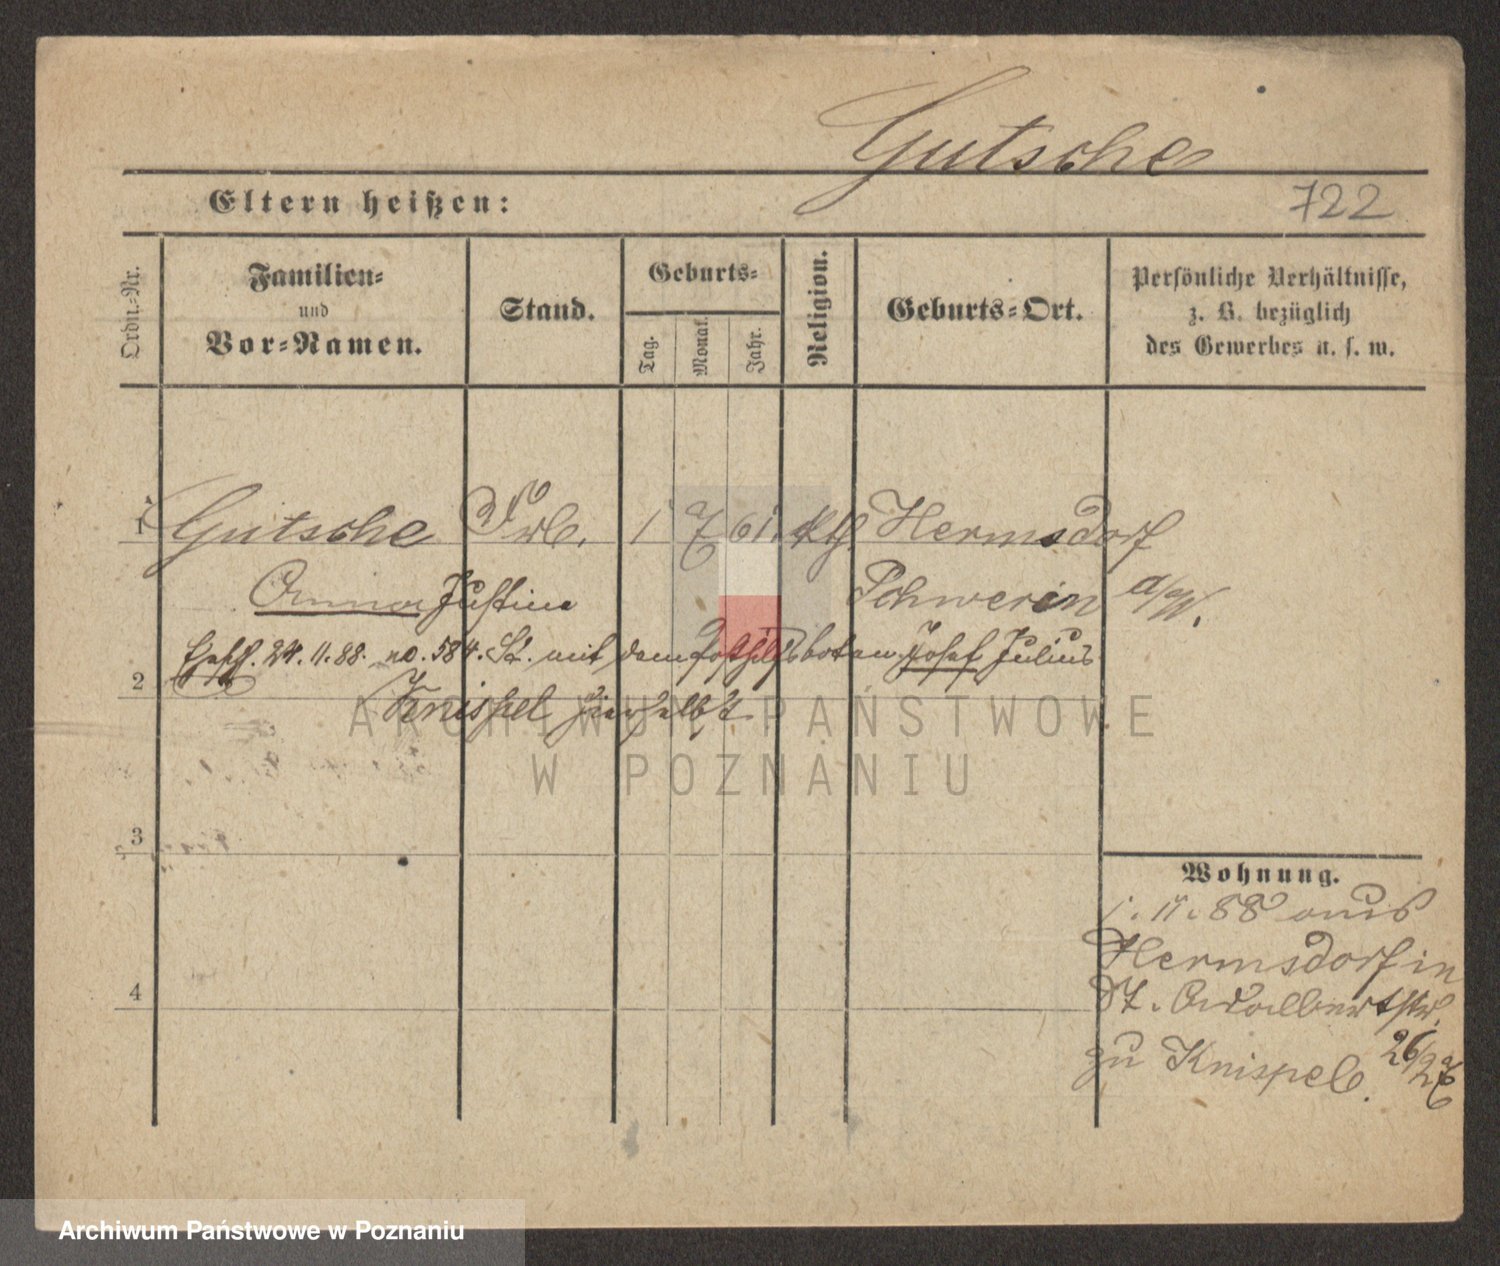 Gutsche
Eltern heißen:
722
Ordn.-Nr.
Familien-
und
Vor-Namen.
Stand.
Geburts-
Tag.
Monat.
Jahr.
Religion.
Geburts-Ort.
Persönliche Verhältnisse,
z. B. bezüglich
des Gewerbes u. s. w.
1 Gutsche Frl. 1 7 61. kth. Hermsdorf
Anna Justine Schwerin a/W.
24.11.88. no. 584. St. mit dem Posthilfsboten Josef Julius
2
Knispel hierselbst
ARCHIWUM PAŃSTWOWE
W POZNANIU
3
Wohnung.
1.11.88 aus
Hermsdorf in
4
St. Adalbertstr.
zu Knispel. 26/27
Archiwum Państwowe w Poznaniu